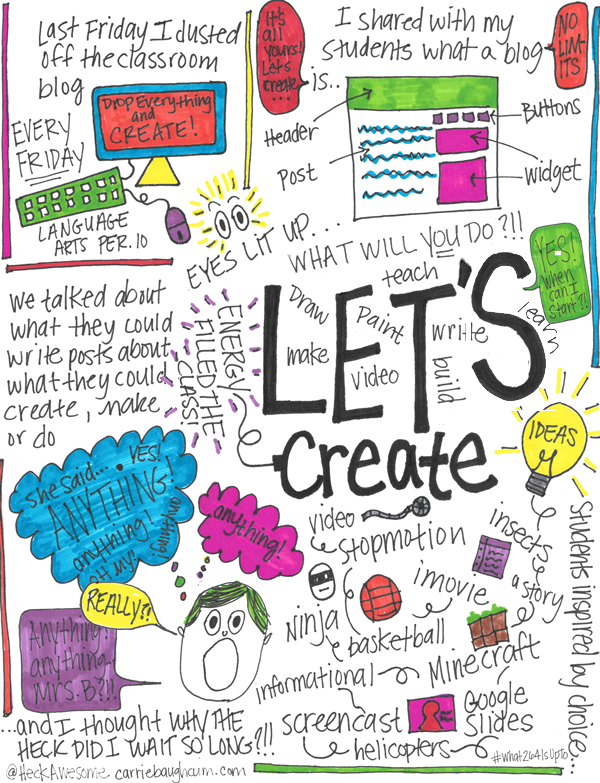 Last Friday I dusted
off the classroom
blog
It's
all
yours!
Let's
create
...
I shared with my
students what a blog
is...
NO
LIM-
ITS
Drop Everything
and
CREATE!
EVERY
FRIDAY
LANGUAGE
ARTS PER. 10
Header
Post
Buttons
Widget
EYES LIT UP...
WHAT WILL YOU DO?!!
YES!
When
can I
start?!
we talked about
what they could
write posts about
what they could
create, make
or do
ENERGY
FILLED THE
CLASS!
LET'S
create
Draw
make
Paint
video
teach
write
build
learn
IDEAS
she said... YES!
ANYTHING!
anything!
anything!
oh my
anything!
REALLY?!
Anything?
anything
Mrs. B?!!
video
stopmotion
insects
a story
imovie
Ninja
basketball
Minecraft
informational
screencast
Google
Slides
helicopters
students inspired by choice...
...and I thought WHY THE
HECK DID I WAIT SO LONG?!!
#what264IsUpTo
@HeckAwesome carriebaughcum.com